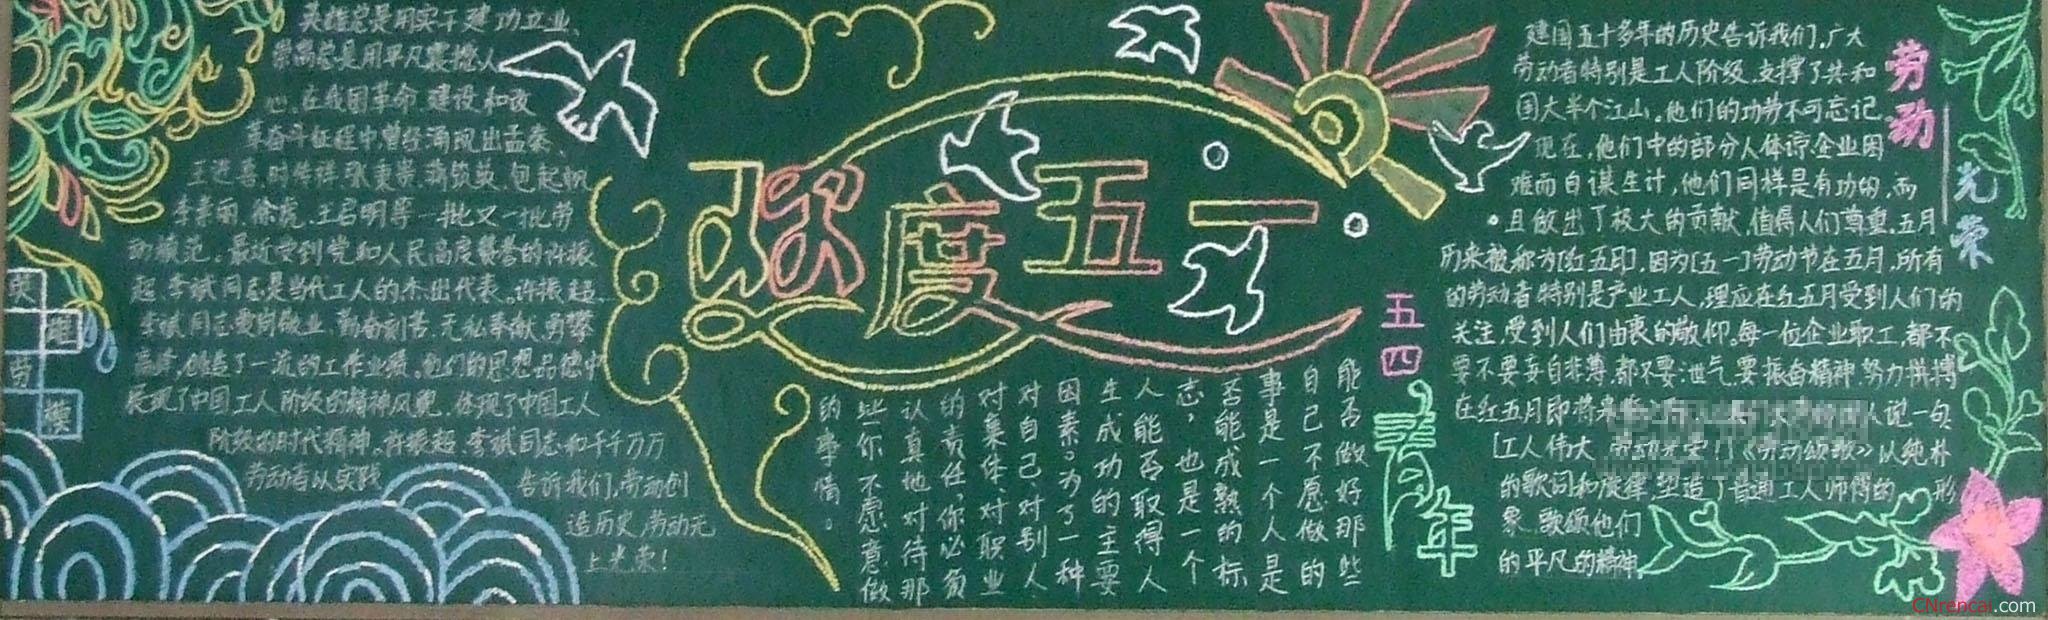 英雄总是用实干建功立业、
崇高总是用平凡震撼人
心。在我国革命、建设和改
革奋斗征程中,曾经涌现出孟泰、
王进喜、时传祥、张秉贵、蒋筑英、包起帆、
李素丽、徐虎、王启明等一批又一批劳
动模范。最近受到党和人民高度赞誉的许振
超、李斌同志是当代工人的杰出代表。许振超、
李斌同志爱岗敬业、勤奋刻苦、无私奉献、勇攀
高峰,创造了一流的工作业绩。他们的思想品德中
展现了中国工人阶级的精神风貌,体现了中国工人
阶级的时代精神。许振超、李斌同志和千千万万
劳动者以实践
告诉我们,劳动创
造历史,劳动无
上光荣!
劳
模
欢度五一
能否做好那些
自己不愿做的
事是一个人是
否能成熟的标
志,也是一个
人能否取得人
生成功的主要
因素。为了一种
对自己、对别人
对集体、对职业
的责任,你必须
认真地对待那
些你不愿意做
的事情。
五四
青年
建国五十多年的历史告诉我们,广大
劳动者特别是工人阶级,支撑了共和
国大半个江山。他们的功劳不可忘记
现在,他们中的部分人体谅企业困
难而自谋生计,他们同样是有功的,而
且做出了极大的贡献,值得人们尊重。五月
历来被称为[红五月],因为[五一]劳动节在五月,所有
的劳动者特别是产业工人,理应在红五月受到人们的
关注,受到人们由衷的敬仰。每一位企业职工,都不
要不要妄自菲薄,都不要泄气,要振奋精神,努力拼搏
在红五月即将来临之 人说一句
[工人伟大,劳动光荣!]《劳动颂歌》以纯朴
的歌词和旋律,塑造了普通工人师傅的形
象,歌颂他们
的平凡的精神。
劳动
光荣
CNrencai.com